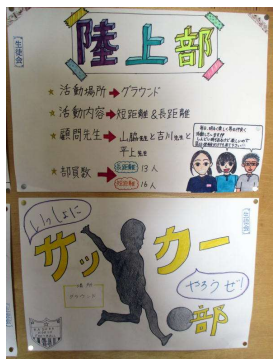 【生徒会】
陸上部
★ 活動場所 → グラウンド
★ 活動内容 → 短距離&長距離
★ 顧問先生 → 山脇先生と吉川先生と
平上先生
★ 部員数 → 長距離 13人
短距離 16人
いっしょに
サッカー
部
やろうぜ!
場所
グラウンド